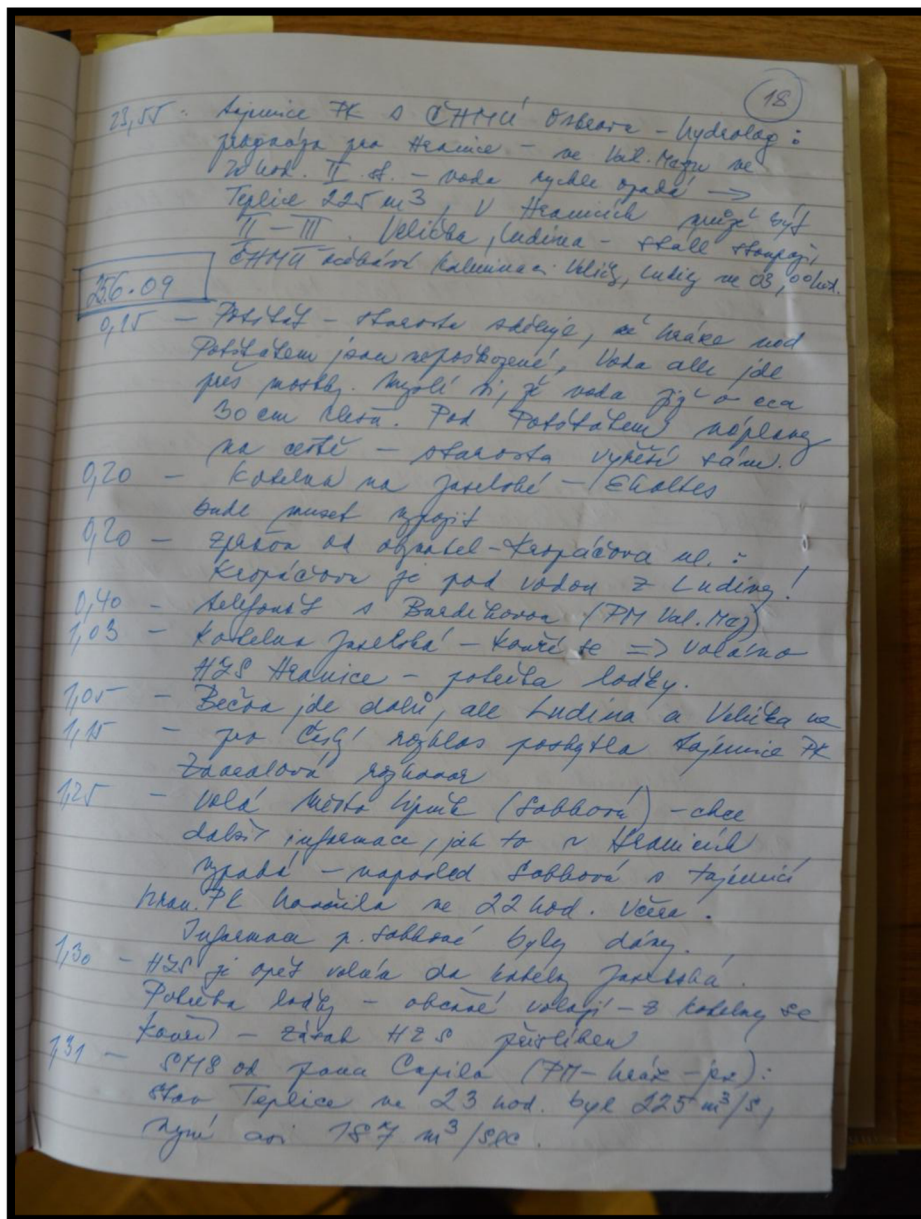 18
23,55 - tajemnice PK s ČHMÚ Ostrava - hydrolog :
prognóza pro Hranice - ve Val. Meziř. ve
hod. II. st. - voda rychle opadá →
Teplice 225 m3, v Hranicích může být
II - III. Velička, Ludina - stále stoupají,
ČHMÚ očekává kulminaci Velič, Ludiny ve 03,00 hod.
25.6.09
0,15 - Potštát - starosta sděluje, že hráze nad
Potštátem jsou nepoškozené, voda ale jde
přes mostky. Myslí si, že voda již o cca
30 cm klesá. Pod Potštátem náplavy
na cestě - starosta vyřeší sám.
0,20 - Kotelna na Jaselské - Ekoltes
bude muset vypojit
0,20 - zpráva od obyvatel - Kropáčova ul. :
Kropáčova je pod vodou z Ludiny!
0,40 - telefonát s Burdíkovou (PM Val. Mez)
1,03 - Kotelna Jaselská - kouří se => voláno
HZS Hranice - potřeba loďky.
1,05 - Bečva jde dolů, ale Ludina a Velička ne
1,15 - pro Český rozhlas poskytla tajemnice PK
Zavadlová rozhovor
1,25 - volá město Lipník (Sobková) - chce
další informace, jak to v Hranicích
vypadá - naposled Sobková s tajemnicí
hran. PK hovořila ve 22 hod. včera.
Informace p. Sobkové byly dány.
1,30 - HZS je opět volán do kotelny Jaselská.
Potřeba loďky - občané volají - z kotelny se
kouří - zásah HZS přislíben
1,31 - SMS od pana Capila (PM - hráz - jez) :
stav Teplice ve 23 hod. byl 225 m³/s,
nyní asi 187 m³/sec.